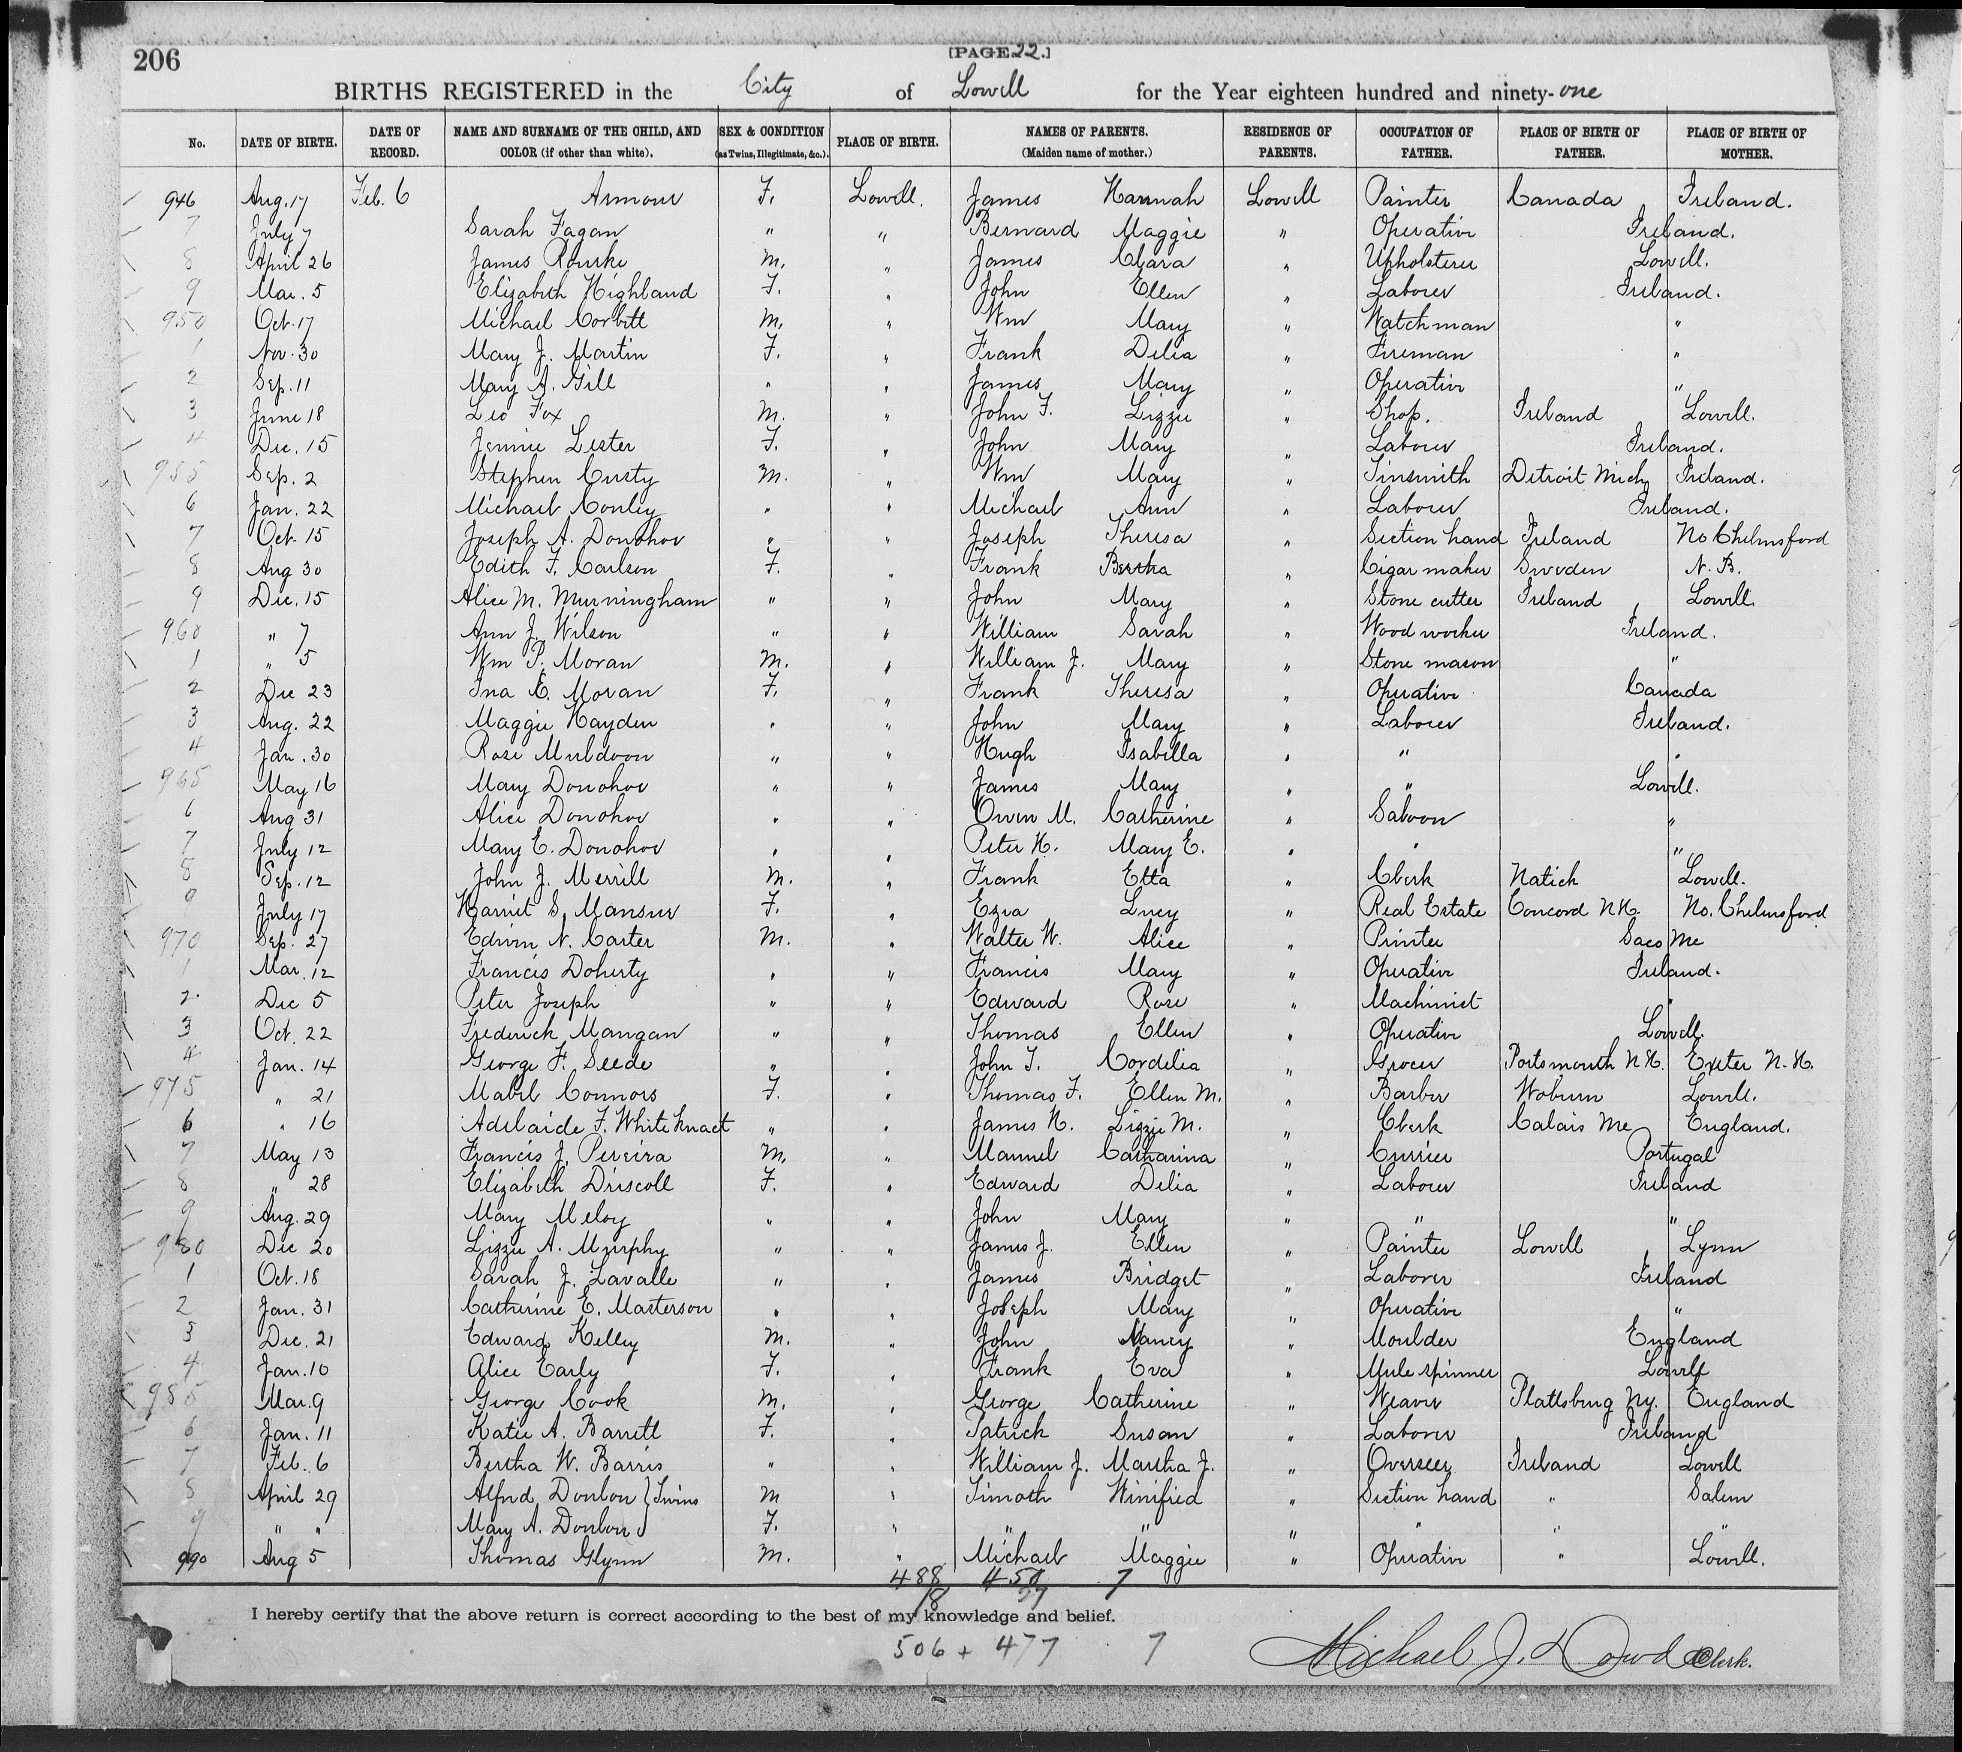 206
[PAGE 22.]
BIRTHS REGISTERED in the City of Lowell for the Year eighteen hundred and ninety-one
No. DATE OF BIRTH. DATE OF RECORD. NAME AND SURNAME OF THE CHILD, AND COLOR (if other than white). SEX & CONDITION (as Twins, Illegitimate, &c.). PLACE OF BIRTH. NAMES OF PARENTS. (Maiden name of mother.) RESIDENCE OF PARENTS. OCCUPATION OF FATHER. PLACE OF BIRTH OF FATHER. PLACE OF BIRTH OF MOTHER.
946 Aug. 17 Feb. 6 Armour F. Lowell. James Hannah Lowell Painter Canada Ireland.
7 July 7 Sarah Fagan " " Bernard Maggie " Operative Ireland.
8 April 26 James Rourke M. " James Clara " Upholsterer Lowell.
9 Mar. 5 Elizabeth Highland F. " John Ellen " Laborer Ireland.
950 Oct. 17 Michael Corbitt M. " Wm Mary " Watchman "
1 Nov. 30 Mary J. Martin F. " Frank Delia " Fireman "
2 Sep. 11 Mary A. Gill " " James Mary " Operative "
3 June 18 Leo Fox M. " John F. Lizzie " Shop. Ireland Lowell.
4 Dec. 15 Jennie Lester F. " John Mary " Laborer Ireland.
955 Sep. 2 Stephen Custy M. " Wm Mary " Tinsmith Detroit Mich Ireland.
6 Jan. 22 Michael Conley " " Michael Ann " Laborer Ireland.
7 Oct. 15 Joseph A. Donohoe " " Joseph Theresa " Section hand Ireland No Chelmsford
8 Aug 30 Edith F. Carlson F. " Frank Bertha " Cigar maker Sweden N. B.
9 Dec. 15 Alice M. Murningham " " John Mary " Stone cutter Ireland Lowell.
960 " 7 Ann J. Wilson " " William Sarah " Wood worker Ireland.
1 " 5 Wm P. Moran M. " William J. Mary " Stone mason "
2 Dec 23 Ina E. Moran F. " Frank Theresa " Operative Canada
3 Aug. 22 Maggie Hayden " " John Mary " Laborer Ireland.
4 Jan. 30 Rose Muldoon " " Hugh Isabella " " "
965 May 16 Mary Donohoe " " James Mary " " Lowell.
6 Aug 31 Alice Donohoe " " Owen M. Catherine " Saloon "
7 July 12 Mary E. Donohoe " " Peter H. Mary E. " " "
8 Sep. 12 John J. Merrill M. " Frank Etta " Clerk Natick Lowell.
9 July 17 Harriet S. Mansur F. " Ezra Lucy " Real Estate Concord N.H. No. Chelmsford
970 Sep. 27 Edwin N. Carter M. " Walter W. Alice " Printer Saco Me
1 Mar. 12 Francis Doherty " " Francis Mary " Operative Ireland.
2 Dec 5 Peter Joseph " " Edward Rose " Machinist "
3 Oct. 22 Frederick Mangan " " Thomas Ellen " Operative Lowell.
4 Jan. 14 George F. Seede " " John T. Cordelia " Grocer Portsmouth N.H. Exeter N.H.
975 " 21 Mabel Connors F. " Thomas F. Ellen M. " Barber Woburn Lowell.
6 " 16 Adelaide F. White knact " " James N. Lizzie M. " Clerk Calais Me England.
7 May 13 Francis J. Pereira M. " Manuel Catharina " Currier Portugal
8 " 28 Elizabeth Driscoll F. " Edward Delia " Laborer Ireland
9 Aug. 29 Mary Meloy " " John Mary " " "
980 Dec 20 Lizzie A. Murphy " " James J. Ellen " Painter Lowell Lynn
1 Oct. 18 Sarah J. Lavalle " " James Bridget " Laborer Ireland
2 Jan. 31 Catherine E. Masterson " " Joseph Mary " Operative "
3 Dec. 21 Edward Kelley M. " John Nancy " Moulder England
4 Jan. 10 Alice Early F. " Frank Eva " Mule spinner Lowell
985 Mar. 9 George Cook M. " George Catherine " Weaver Plattsburg Ny. England
6 Jan. 11 Katie A. Barrett F. " Patrick Susan " Laborer Ireland
7 Feb. 6 Bertha W. Barris " " William J. Martha J. " Overseer Ireland Lowell
8 April 29 Alfred Donlon } Twins M " Timoth Winifred " Section hand " Salem
9 " " Mary A. Donlon } F. " " " " " " "
990 Aug 5 Thomas Glynn M. " Michael Maggie " Operative " Lowell.
488 450 7
18 27
I hereby certify that the above return is correct according to the best of my knowledge and belief.
506 + 477 7
Michael J. Dowd Clerk.